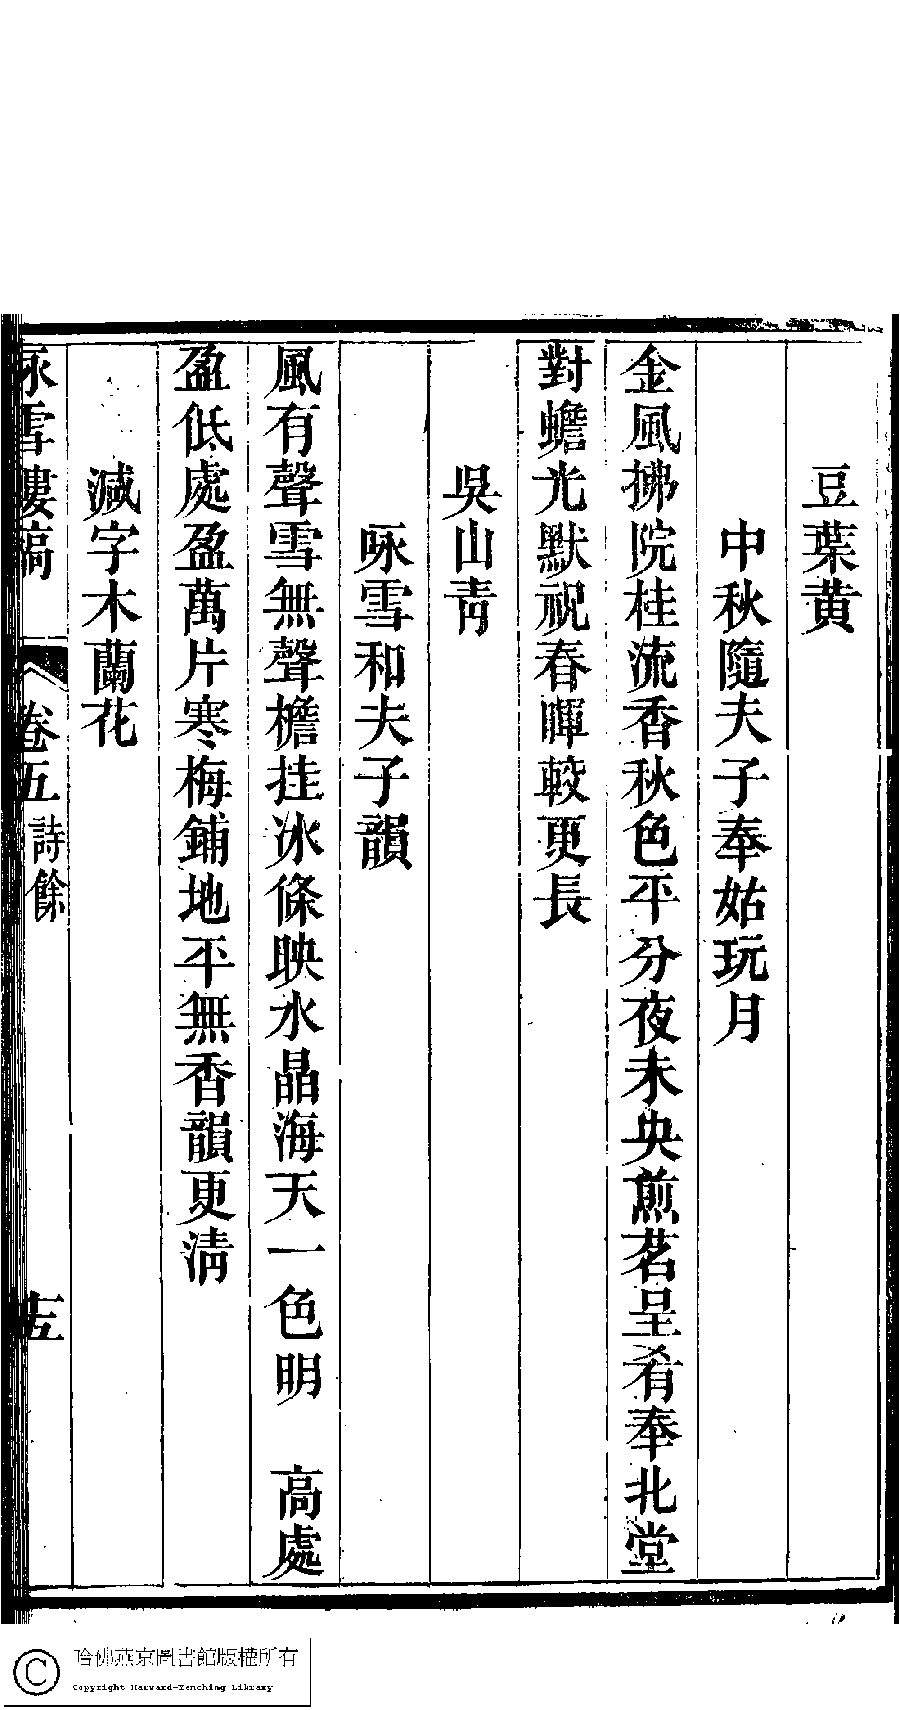 豆葉黄
中秋隨夫子奉姑玩月
金風拂院桂流香秋色平分夜未央煎茗呈肴奉北堂
對蟾光默祝春暉較更長
吳山青
咏雪和夫子韻
風有聲雪無聲檐挂冰條映水晶海天一色明　高處
盈低處盈萬片寒梅鋪地平無香韻更清
減字木蘭花
咏雪樓稿　卷五　詩餘　十五
哈佛燕京圖書館版權所有
Copyright Harvard-Yenching Library